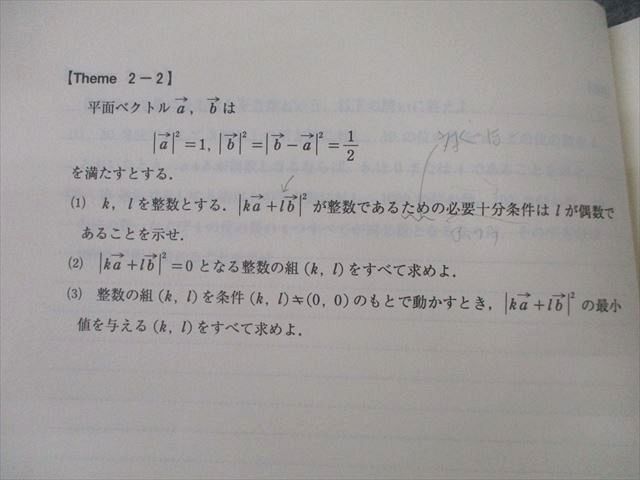 【Theme 2－2】
平面ベクトル a→, b→ は
|a→|²=1, |b→|²=|b→−a→|²=1/2
を満たすとする．
(1) k, l を整数とする．|ka→+lb→|² が整数であるための必要十分条件は l が偶数で
あることを示せ．
(2) |ka→+lb→|²=0 となる整数の組 (k, l) をすべて求めよ．
(3) 整数の組 (k, l) を条件 (k, l)≠(0, 0) のもとで動かすとき，|ka→+lb→|² の最小
値を与える (k, l) をすべて求めよ．